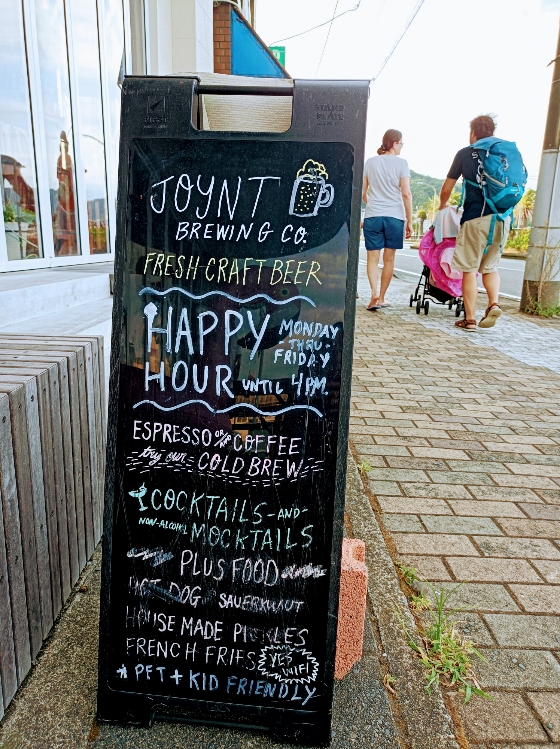 JOYNT
BREWING CO.
FRESH CRAFT BEER
HAPPY
HOUR
MONDAY
THRU
FRIDAY
UNTIL 4PM.
ESPRESSO OR COFFEE
try our COLD BREW
COCKTAILS -AND-
NON-ALCOHOL MOCKTAILS
PLUS FOOD
HOT DOG SAUERKRAUT
HOUSE MADE PICKLES
FRENCH FRIES
YES
WIFI
PET + KID FRIENDLY